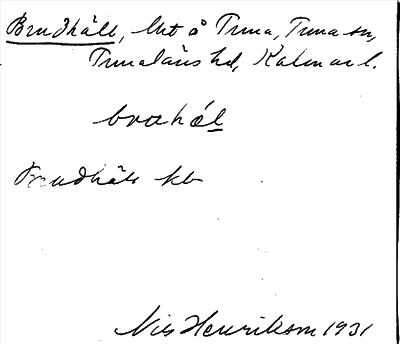 Brudhäll, Urt å Tuna, Tuna sn,
Tunaläns hd, Kalmar l.
brɷhǽl
Brudhäll kb
Nils Henrikson 1931